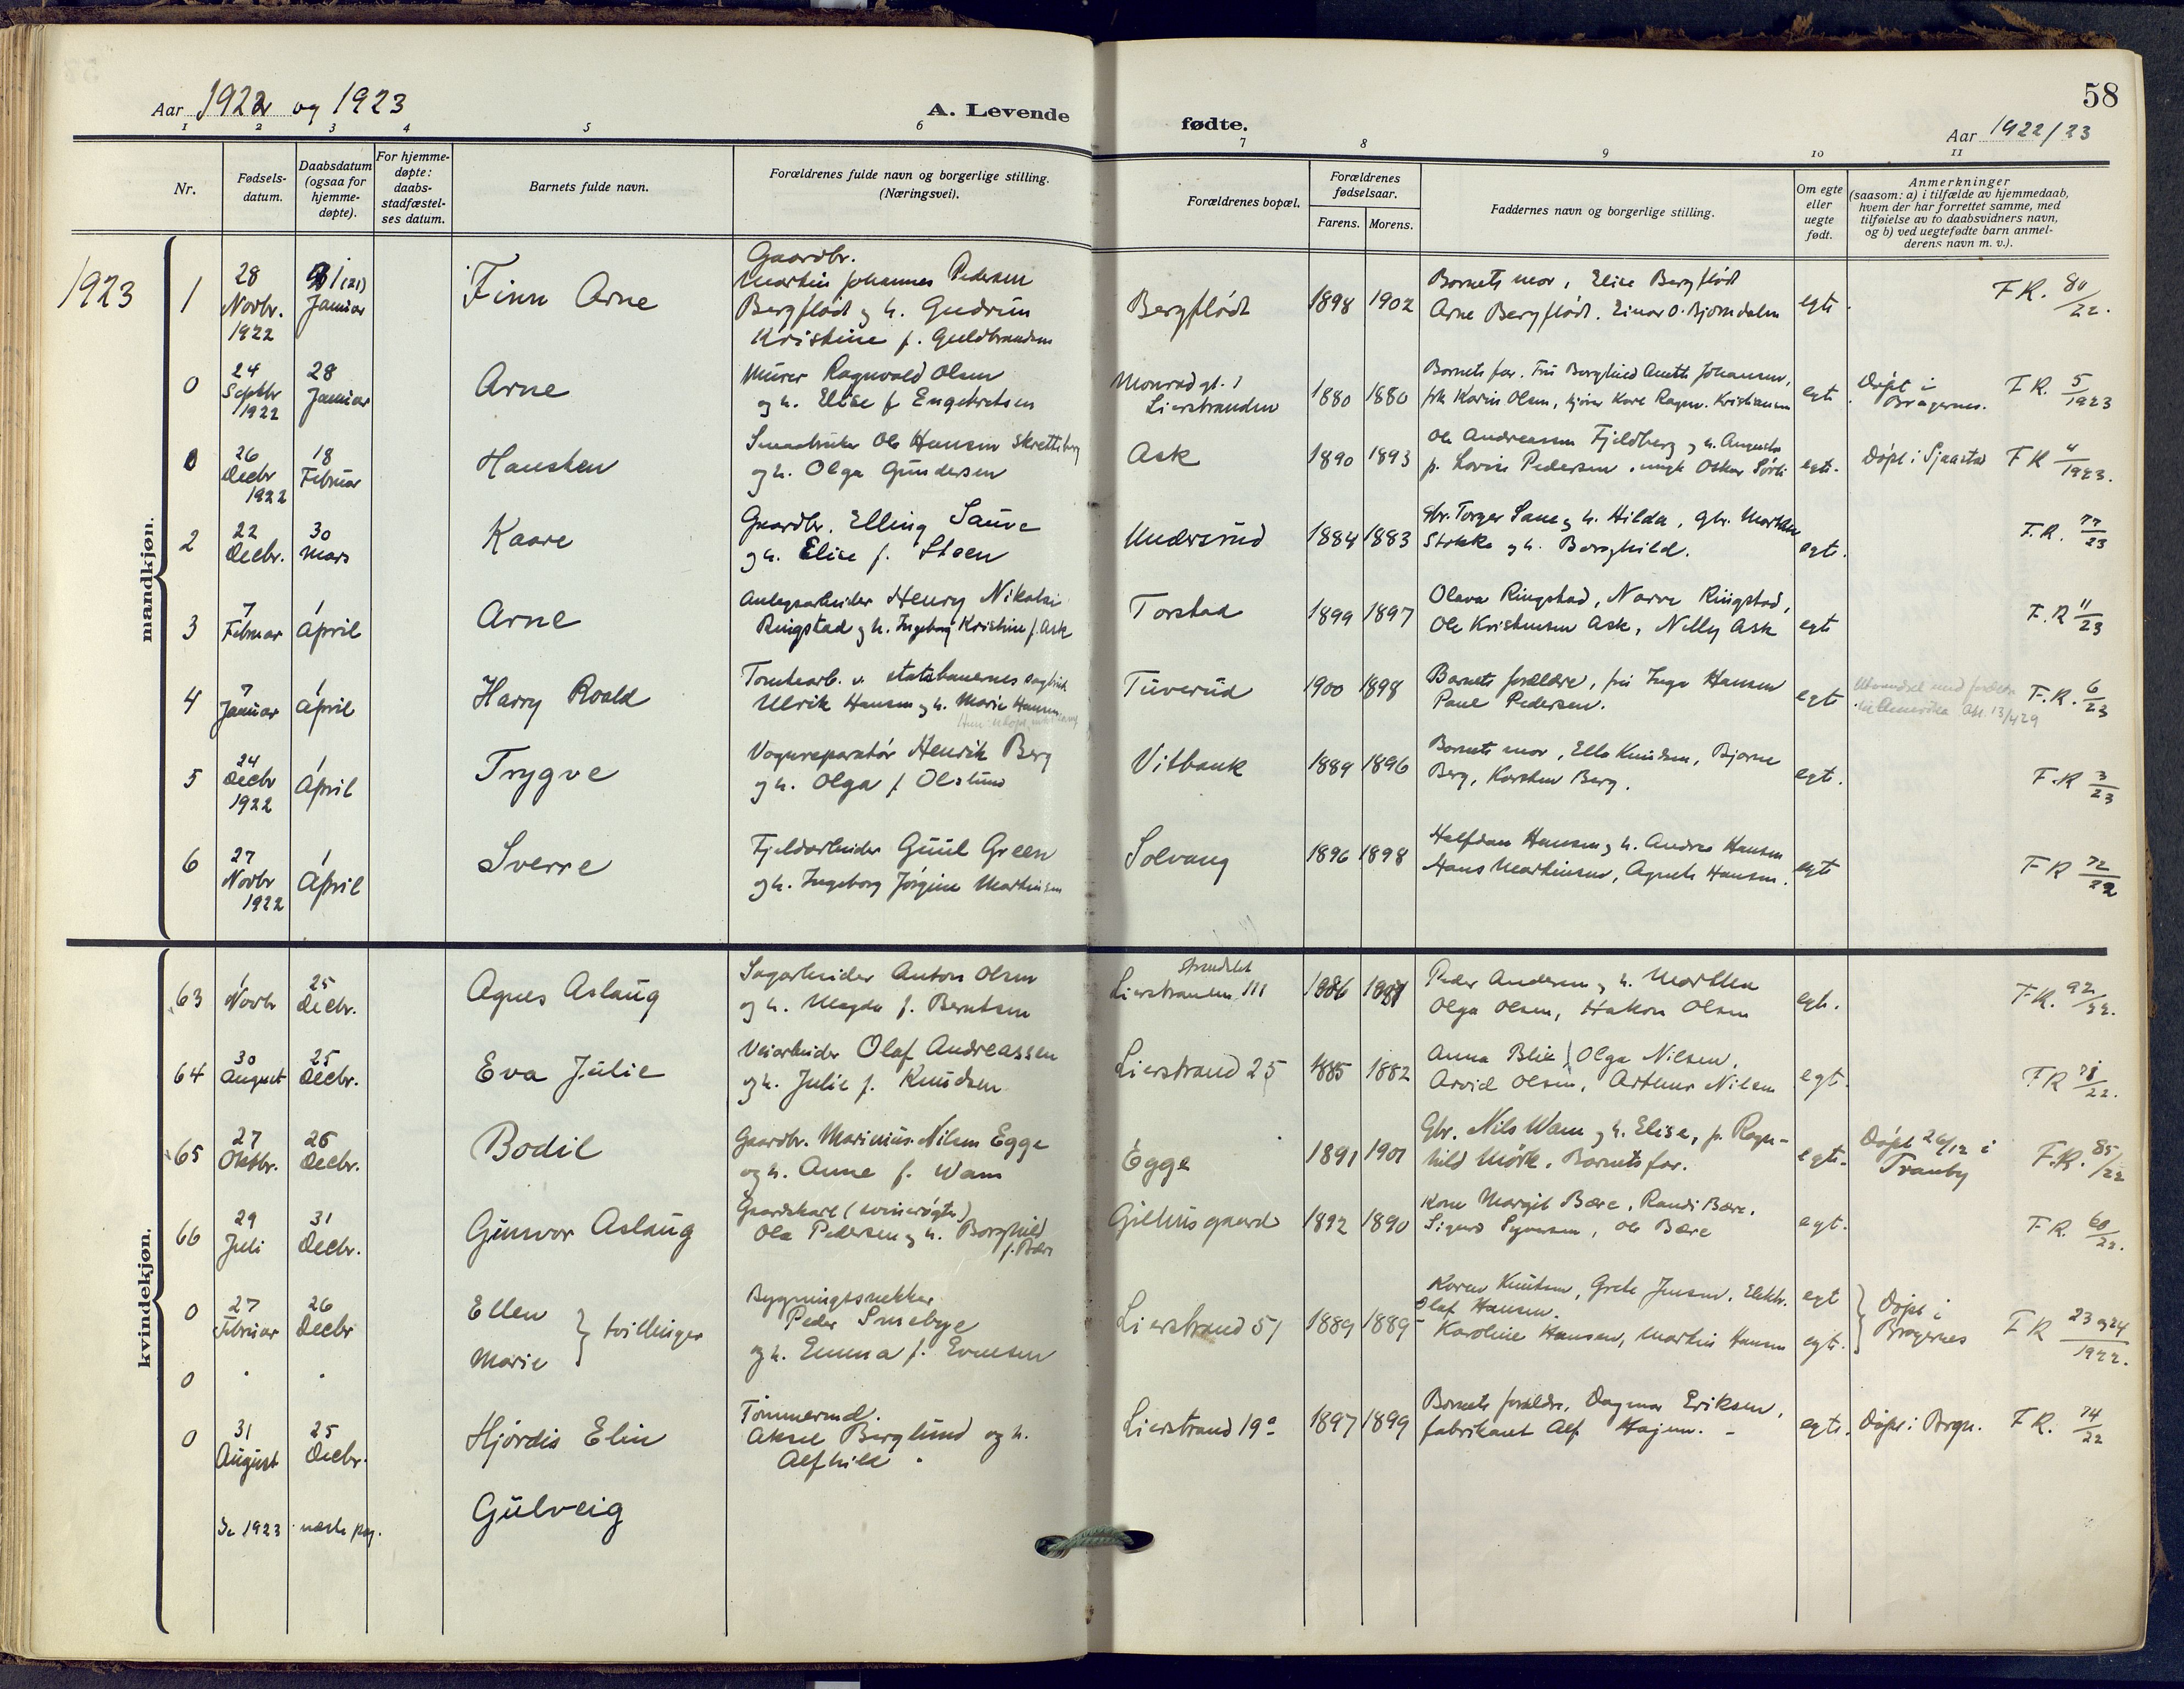 58
Aar 1922 og 1923
A. Levende
fødte.
Aar 1922/23
1 2 3 4 5 6 7 8 9 10 11
Nr.
Fødsels-
datum.
Daabsdatum
(ogsaa for
hjemme-
døpte).
For hjemme-
døpte:
daabs-
stadfæstel-
ses datum.
Barnets fulde navn.
Forældrenes fulde navn og borgerlige stilling.
(Næringsvei).
Forældrenes bopæl.
Forældrenes
fødselsaar.
Farens. Morens.
Faddernes navn og borgerlige stilling.
Om egte
eller
uegte
født.
Anmerkninger
(saasom: a) i tilfælde av hjemmedaab,
hvem der har forrettet samme, med
tilføielse av to daabsvidners navn,
og b) ved uegtefødte barn anmel-
derens navn m. v.).
mandkjøn.
1923
1
28
Novbr.
1922
Januar
Finn Arne
Gaardbr.
Martin Johannes Pedersen
Bergflødt og h. Gudrun
Kristine f. Guldbrandsen
Bergflødt
1898 1902
Barnets mor, Elise Bergflødt
Arne Bergflødt. Einar O. Bjørndalen
egte
F.R. 80/22.
0
24
Septbr
1922
28
Januar
Arne
Murer Ragnvald Olsen
og h. Elise f Engebretsen
Monrad gt. 1
Lierstranden
1880 1880
Barnets far. Fru Borghild Aneth Johansen,
frk Karin Olsen, Kare Ragnv. Kristiansen
egte
Døpt i
Bragernes.
F.R. 5/1923
0
26
Decbr
1922
18
Februar
Hansken
Smaabruker Ole Hansen
og h. Olga Gundersen
Ask
1890 1893
Ole Andreassen Fjeldberg og h. Augusta
p. Lovise Pedersen, ungk Oskar
egte.
Døpt i Sjaastad
F R 4/1923.
2
22
Decbr.
30
Mars
Kaare
Gaardbr. Elling Sauve
og h. Elise f. Steen
Undersrud
1884 1883
Gbr. Torger og h. Hilda, Gbr.
og h. Borghild.
egte.
F.R. 77/23
3
7
Februar
1
April
Arne
Anlegsarbeider Henry Nikolai
Ringstad og h. Ingeborg Kristine f. Ask
Torstad
1899 1897
Olava Ringstad, Narve Ringstad,
Ole Kristensen Ask, Nelly Ask
egte
F.R 11/23
4
7
Januar
1
April
Harry Roald
Tomtearb. v. statsbanernes
Ulrik Hansen og h. Marie Hansen
Tuverud
1900 1898
Barnets forældre, fru Inga Hansen
Paul Pedersen.
egte
Utvandret med foreldre
til Amerika 13/4 29
F.R. 6/23
5
24
Decbr
1922
1
April
Trygve
Vognreparatør Henrik Berg
og h. Olga f Olslund
Vitbank
1889 1896
Barnets mor, Ella Knudsen, Bjarne
Berg, Karsten Berg.
egte.
F.R 3/23
6
27
Novbr
1922
1
April
Sverre
Fjeldarbeider Guul Green
og h. Ingeborg Jørgine Martinsen
Solvang
1896 1898
Halfdan Hansen og h. Andrea Hansen
Hans Martinsen, Agnete Hansen.
egte
F R 72/22
kvindekjøn.
63
1
Novbr
25
Decbr.
Agnes Aslaug
Sagarbeider Anton Olsen
og h. Magda f. Berntsen
Lierstranden 111
Peder Andersen og h. Marthea
Olga Olsen, Hakon Olsen
egte.
F.R. 92/22.
64
30
August
25
Decbr.
Eva Julie
Veiarbeider Olaf Andreassen
og h. Julie f. Knudsen
Lierstrand 25
1885 1882
Anna Blix Olga Nilsen,
Arvid Olsen, Arthur Nilsen
egte.
65
27
Oktbr.
26
Decbr.
Bodil
Gaardbr. Marinius Nilsen Egge
og h. Anne f. Wam
Egge
1891 1901
Gbr. Nils Wam og h. Elise, p. Ragn-
hild Mörk. Barnets far.
egte.
Døpt 26/12 i
Tranby
F.R. 85/22
66
29
Juli
31
Decbr.
Gunvor Aslaug
Gaardskarl (svinerøgter)
Ole Pedersen og h. Borghild
f. Bære
Gilhusgaard
1892 1890
Kone Margit Bære, Randi Bære.
Sigurd Syversen, Ole Bære
egt.
F.R. 60/22.
0
27
Februar
26
Decbr
Ellen
Marie
tvillinger
Bygningssnekker
Peder Smebye
og h. Emma f. Evensen
Lierstrand 51
1889 1889
Karen Knutsen, Grete Jensen, Elektr.
Olaf Hansen.
Karoline Hansen, Martin Hansen
egt
egt.
Døpt i
Bragernes
F R 23 og 24/1922.
0
0
31
August
25
Decbr.
Hjördis Elin
Tømmermd.
Aksel Berglund og h.
Alfhild.
Lierstrand 19a
1897 1899
Barnets forældre, Dagmar Eriksen,
fabrikant Alf Hajum.
egte.
Døpt i Bragn.
F R. 74/22
Se 1923 næste pag.
Gulveig